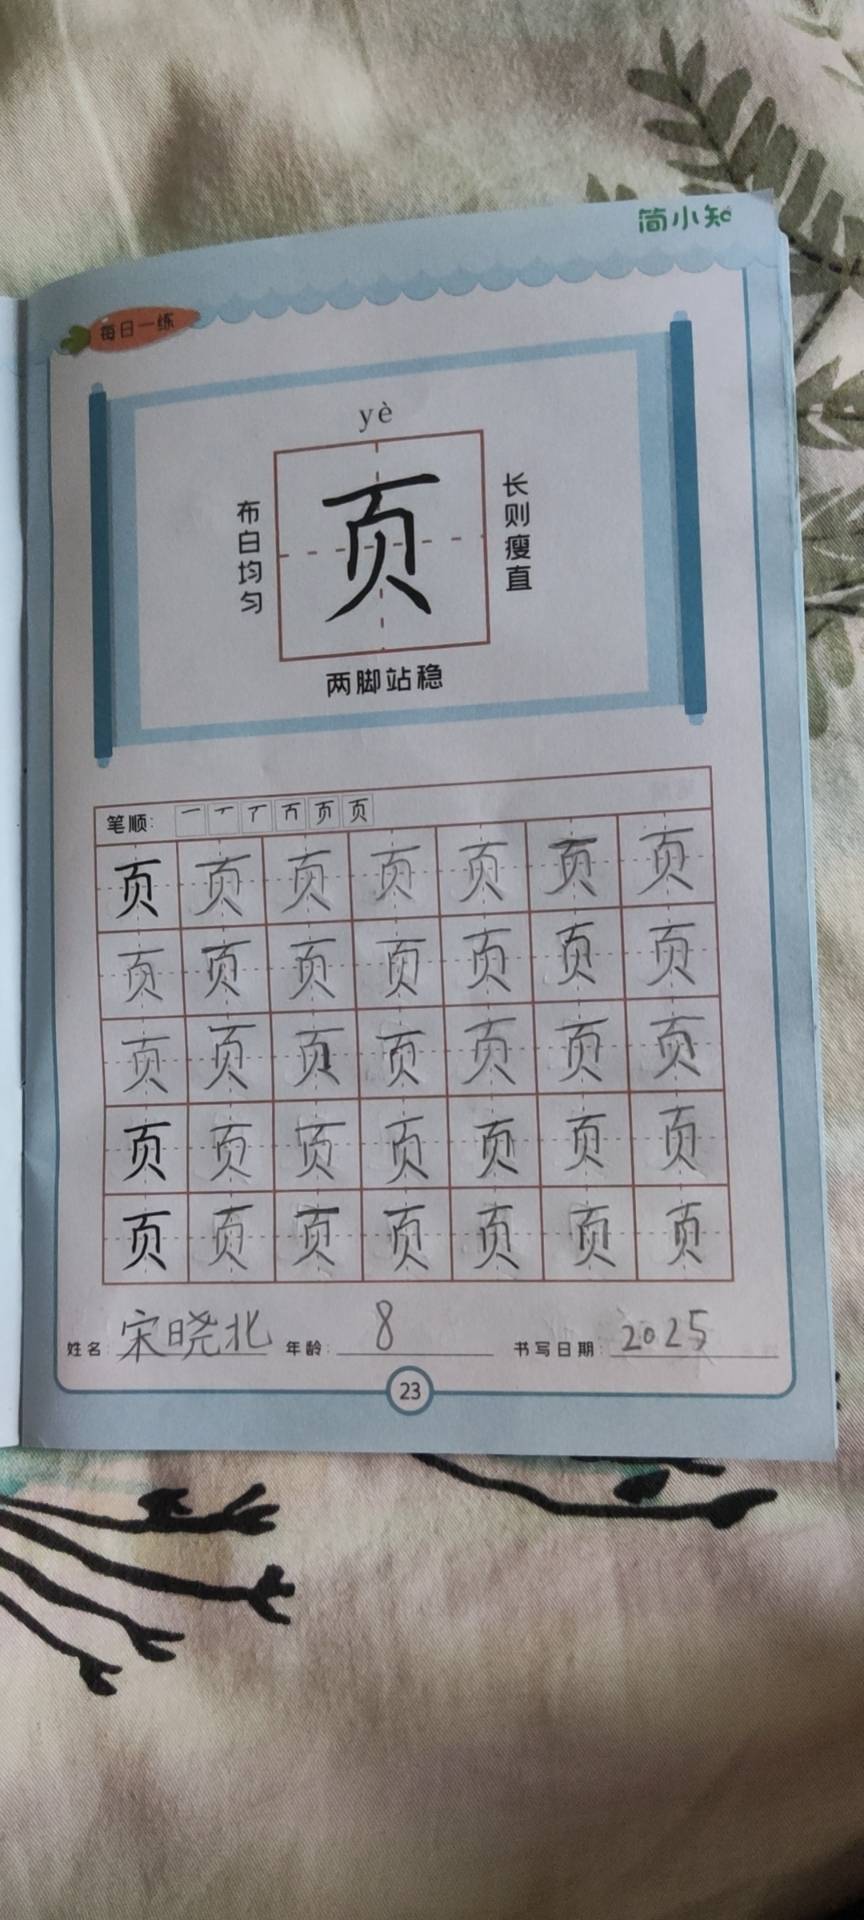 简小知
每日一练
yè
页
布白均匀
长则瘦直
两脚站稳
笔顺:
页 页 页 页 页 页 页
页 页 页 页 页 页 页
页 页 页 页 页 页 页
页 页 页 页 页 页 页
页 页 页 页 页 页 页
姓名: 宋晓北 年龄: 8 书写日期: 2025
23